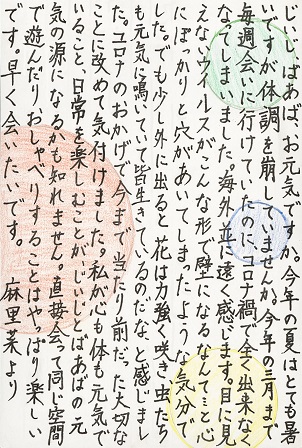 じぃじばぁば、お元気ですか。今年の夏はとても暑
いですが体調を崩していませんか。今年の三月まで
毎週会いに行けていたのに、コロナ禍で全く出来なく
なってしまいました。海外並に遠く感じます。目に見
えないウイルスがこんな形で壁になるなんて…と心
にぽっかりと穴があいてしまったような気分で
した。でも少し外に出ると花は力強く咲き、虫たち
も元気に鳴いていて皆生きているのだな、と感じまし
た。コロナのおかげで、今まで当たり前だった大切な
ことに改めて気付けました。私が心も体も元気で
いること、日常を楽しむことがじぃじとばぁばの元
気の源になるかも知れません。直接会って同じ空間
で遊んだりおしゃべりすることはやっぱり楽しい
です。早く会いたいです。 麻里菜より